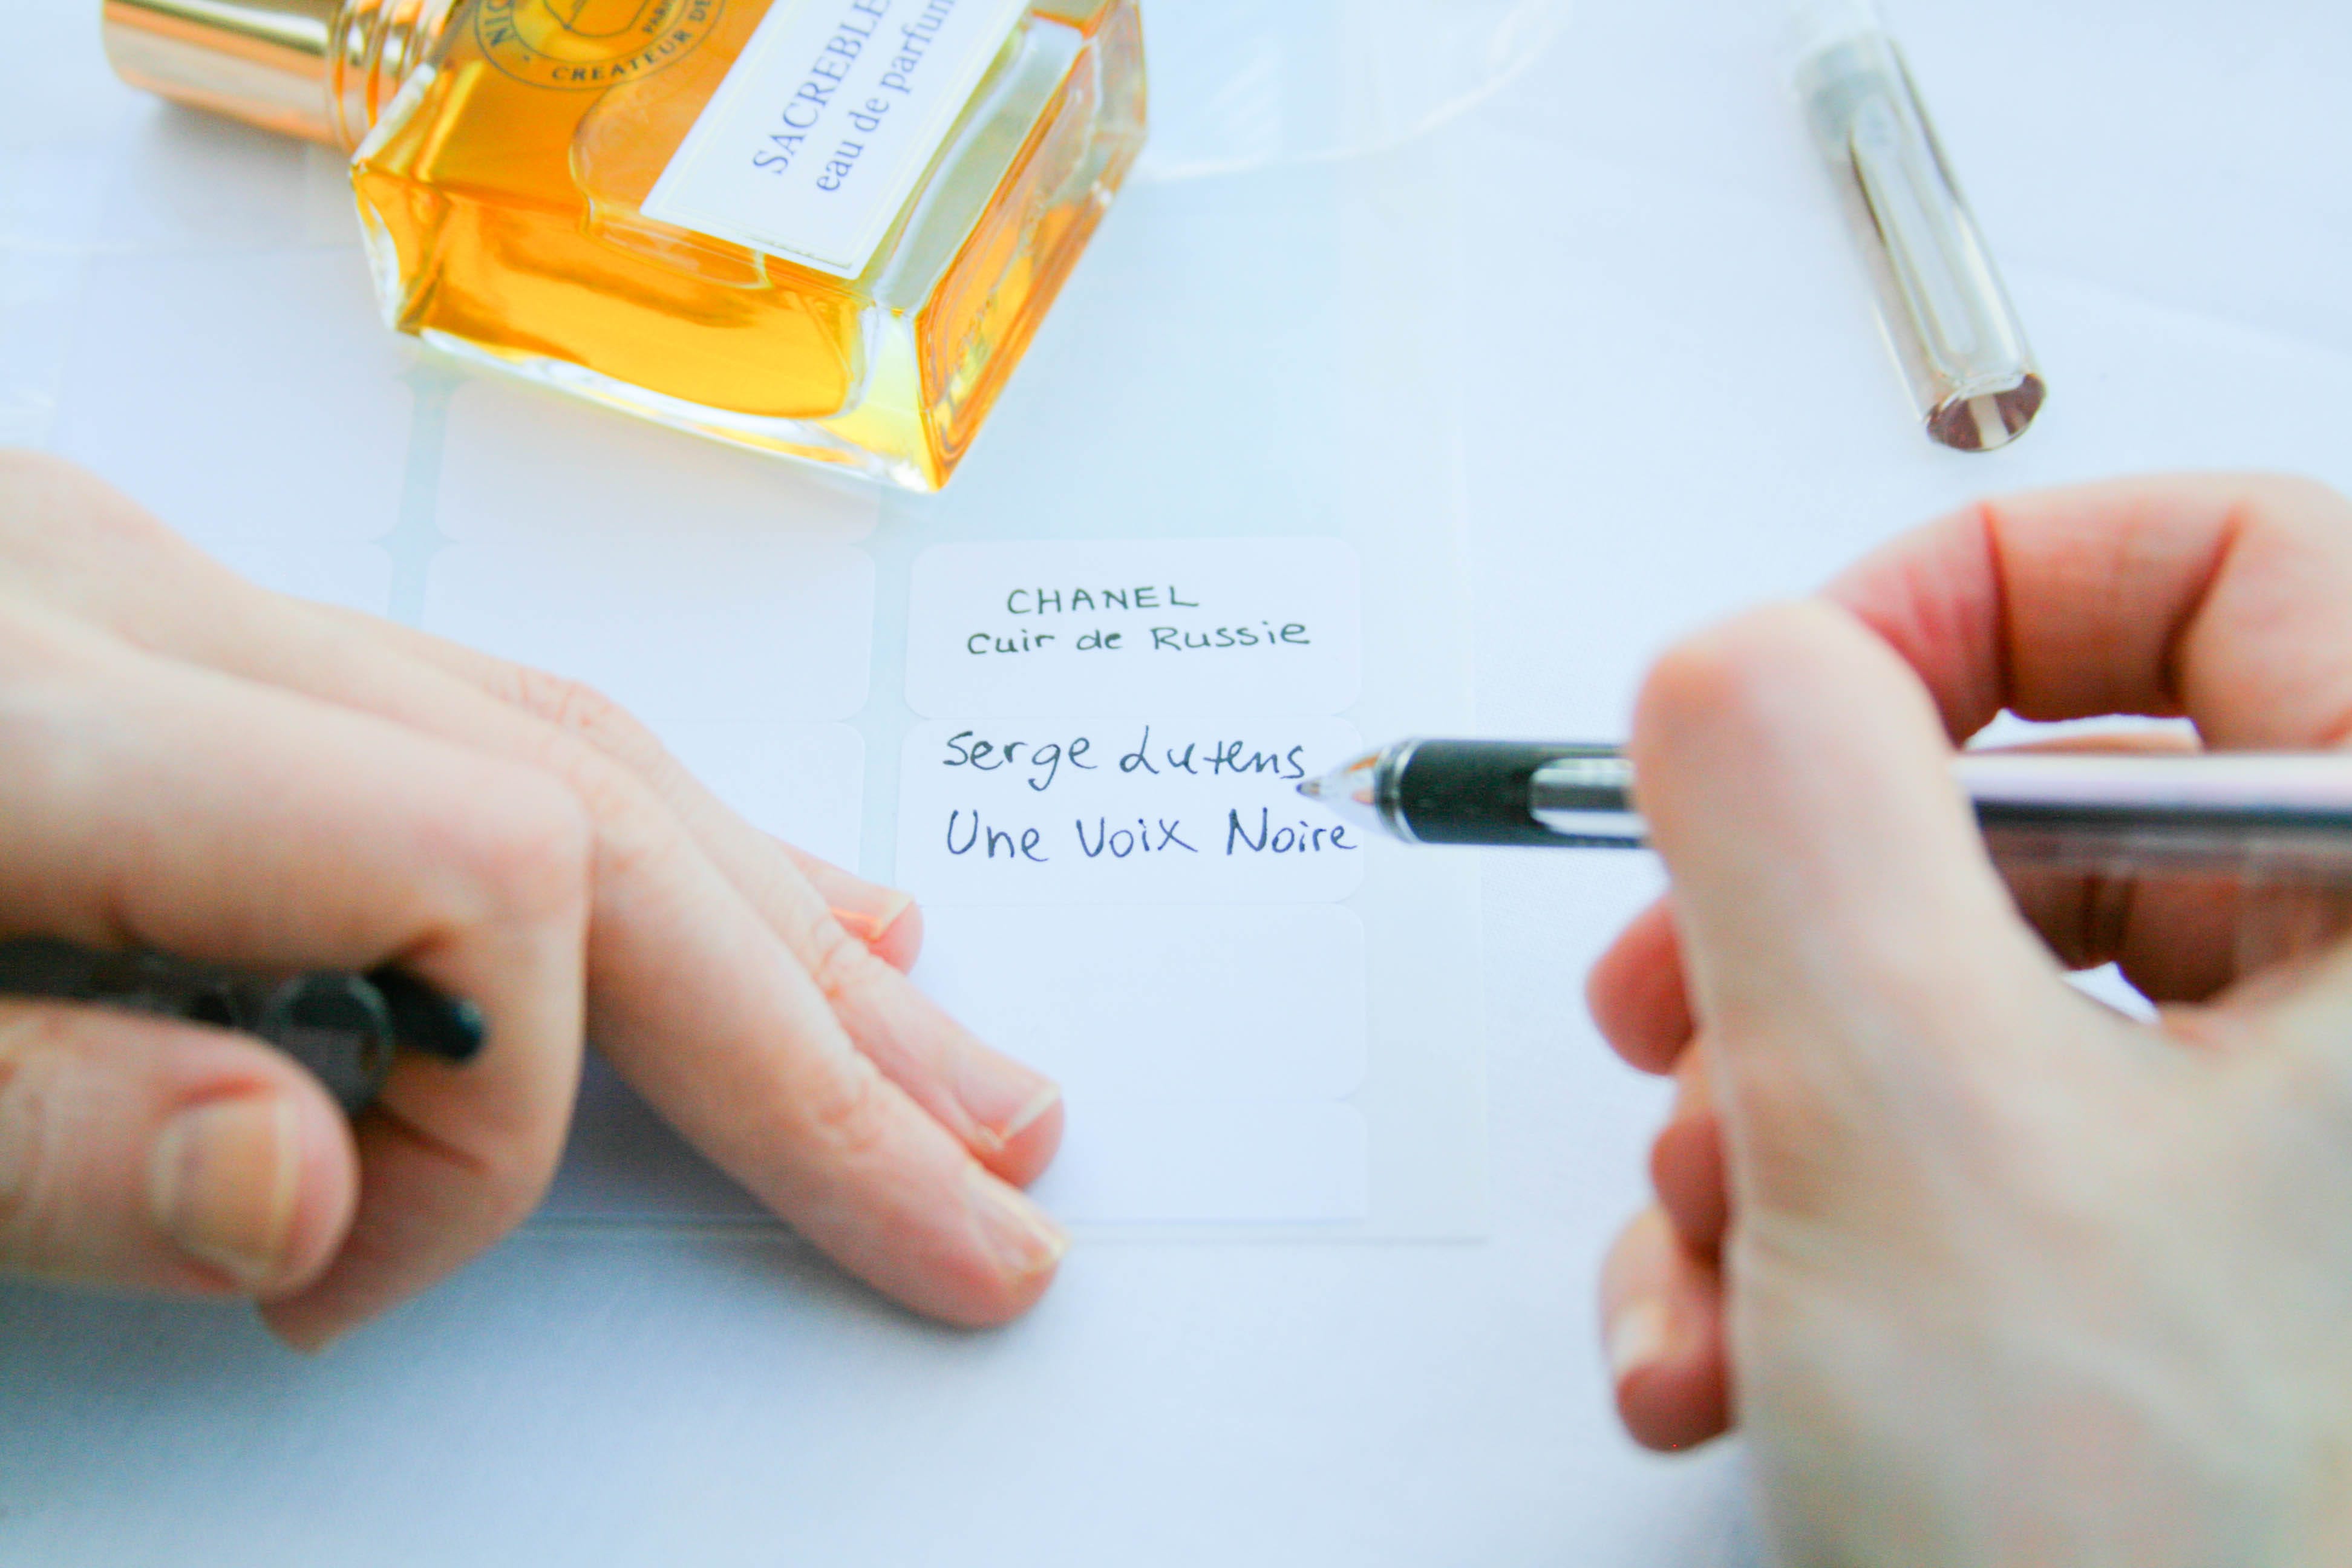 NIC
CREATEUR DE
PARIS
SACREBLE
eau de parfum
CHANEL
Cuir de Russie
Serge Lutens
Une Voix Noire